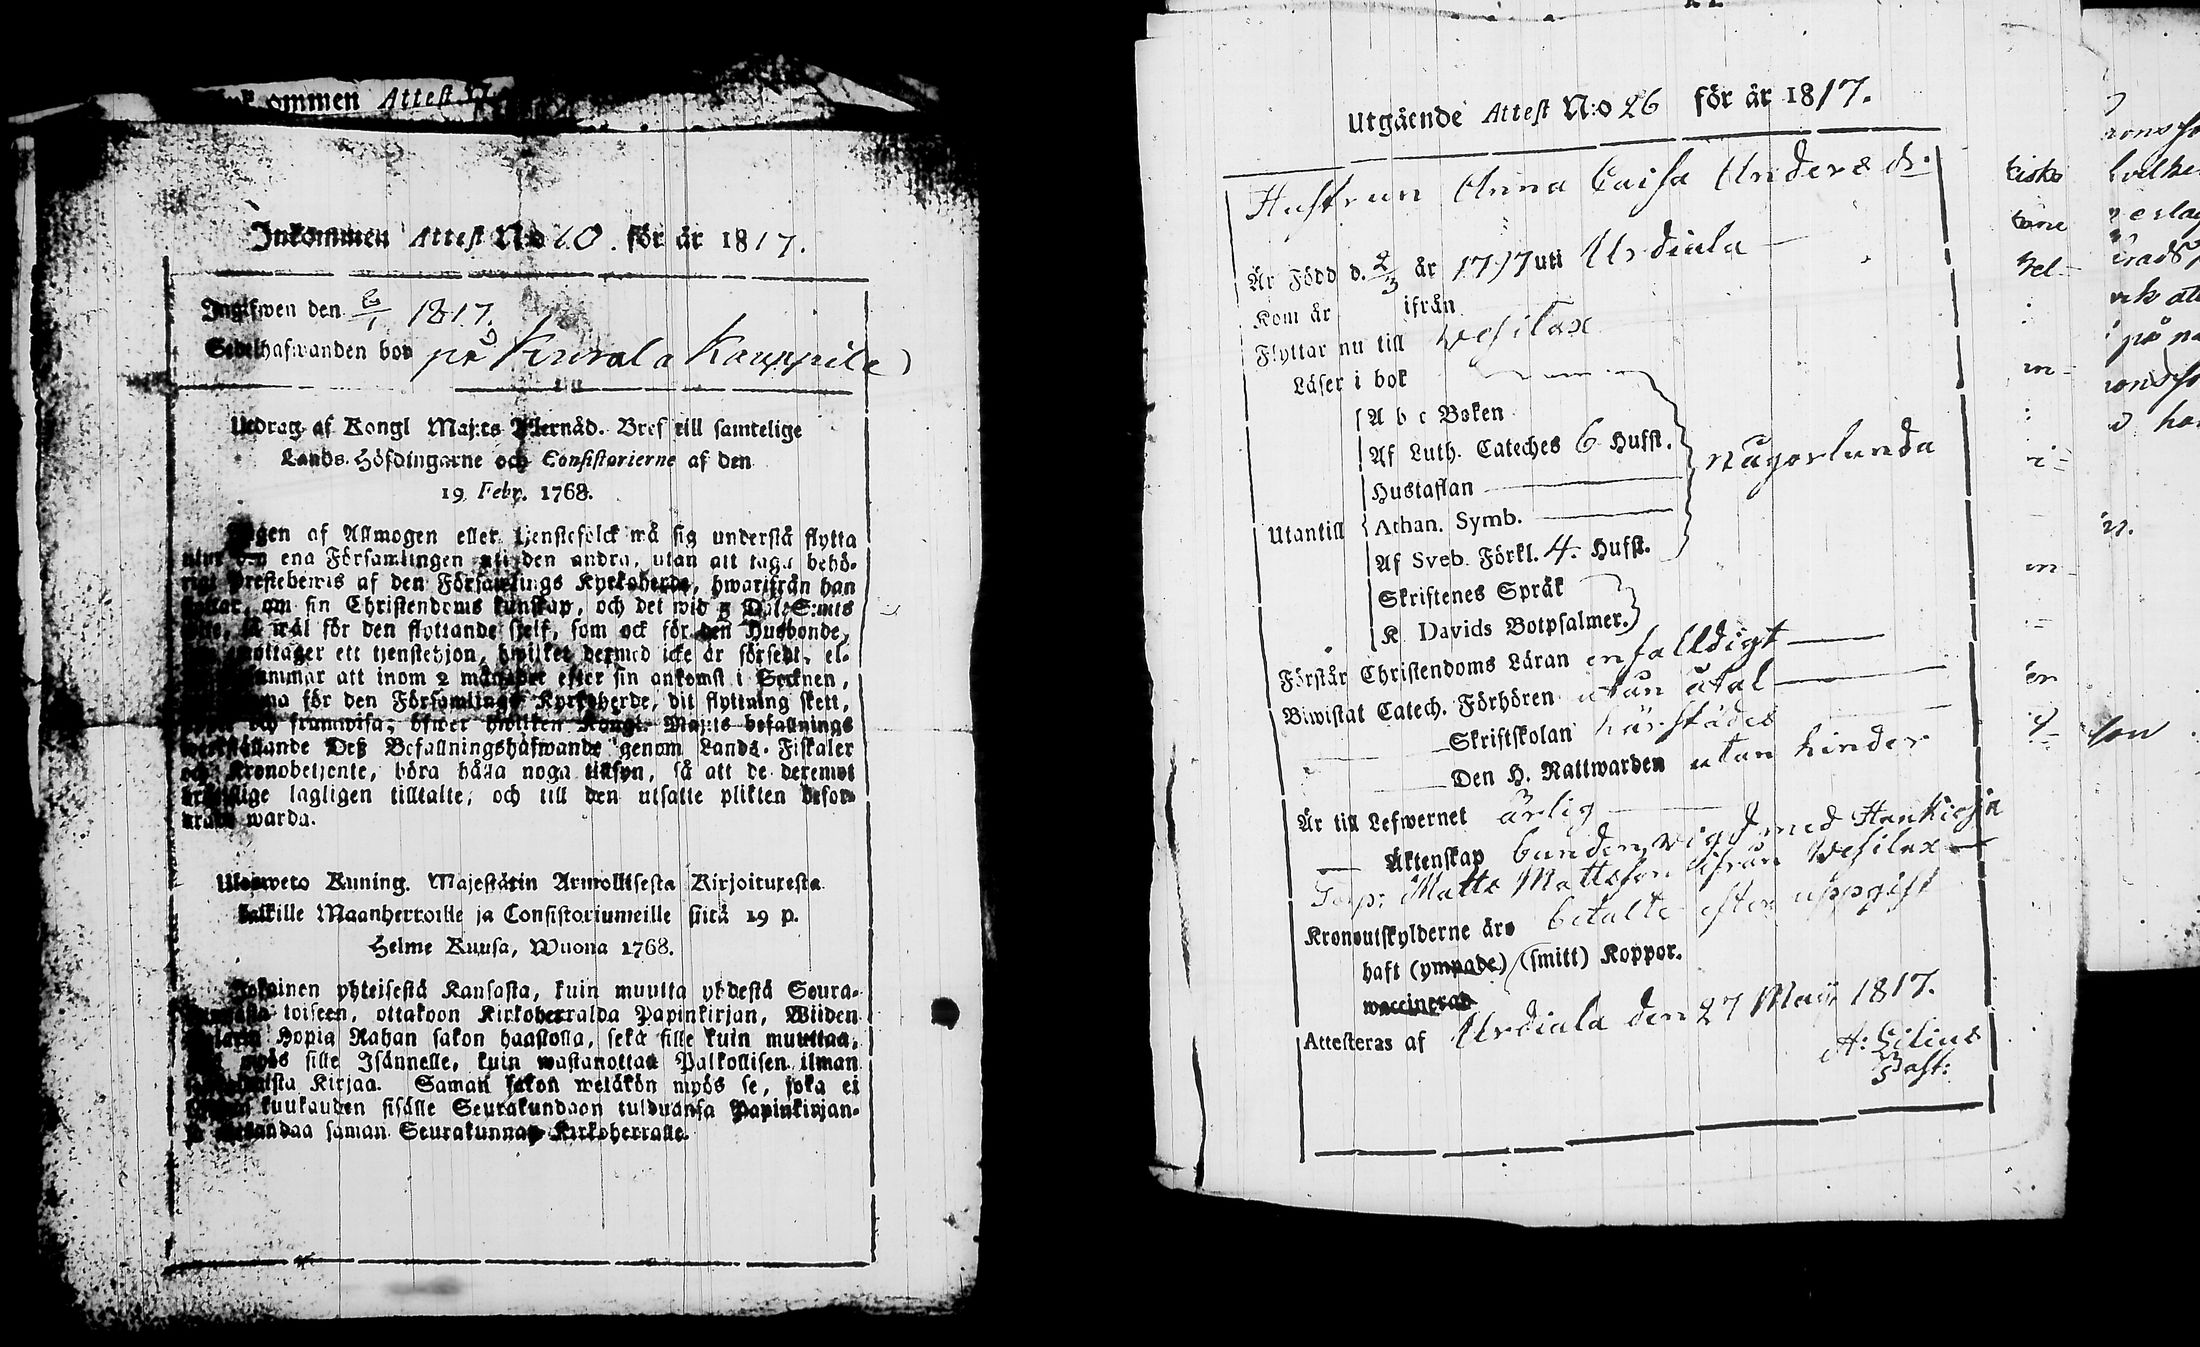 Inkommen Attest
Inkommen Attest N:o 10. för år 1817.
Ingifwen den 1817.
Sedelhafwanden bor på Kurala Kauppila
Utdrag af Kongl Maj:ts Bref till samtelige
Lands-Höfdingarne och Consistorierne af den
19 Febr. 1768.
Ingen af Allmogen eller tjenstefolck må sig understå flytta
utur den ena Församlingen uti den andra, utan att taga behö-
rigt Prestebewis af den Församlings Kyrkoherde, hwarifrån han
flyttar, om sin Christendoms kunskap, och det wid 5 Dal: S:mts
wite, så wäl för den flyttande sjelf, som ock för den Husbonde,
emottager ett tjenstehjon, hwilket dermed icke är försedt, el-
försummar att inom 2 månader efter sin ankomst i Socknen,
för den Församlings Kyrkoherde, dit flyttning skett,
och framwisa; öfwer hwilken Kongl. Maj:ts befallnings
werkställande Deß Befallningshafwande genom Lands-Fiskaler
och Kronobetjente, böra hålla noga tillsyn, så att de deremot
brottslige lagligen tilltalte, och till den utsatte plikten befor-
drade warda.
Ulosweto Kuning. Majestätin Armollisesta Kirjoituresta
kaikille Maanherroille ja Consistoriumeille siitä 19 p.
Helme Kuusa, Wuona 1768.
Jokainen yhteisestä Kansasta, kuin muutta yhdestä Seura-
kunnasta toiseen, ottakoon Kirkoherralda Papinkirjan, Wiiden
Talarin Hopia Rahan sakon haastolla, sekä sille kuin muuttaa,
että myös sille Isännelle, kuin wastanottaa Palkollisen ilman
Kirjaa. Saman sakon wetäkön myös se, joka ei
kuukauden sisälle Seurakundaon tulduansa Papinkirjan-
saman Seurakunnan Kirkoherralle.
Utgående Attest N:o 26 för år 1817.
Hustrun Anna Caisa Anders dr.
Är Född d. 2/3 år 1797 uti Urdiala
Kom år ifrån
Flyttar nu till Wesilax
Läser i bok
A b c Boken
Af Luth. Cateches 6 Hufst.
någorlunda
Hustaflan
Utantill Athan. Symb.
Af Sveb. Förkl. 4. Hufst.
Skriftenes Språk
K. Davids Botpsalmer.
Förstår Christendoms Läran enfalldigt
Biwistat Catech. Förhören utan åtal
Skriftskolan härstädes
Den H. Nattwarden utan hinder
Är till Lefwernet ärlig
Äktenskap bunden, wigd med
Torp: Matts Mattsson ifrån Wesilax
Kronoutskylderne äro betalte efter uppgift
haft (ympade) (smitt) Koppor.
waccinerad
Attesteras af Urdiala den 27 Maji 1817.
A: Lilius
Past: